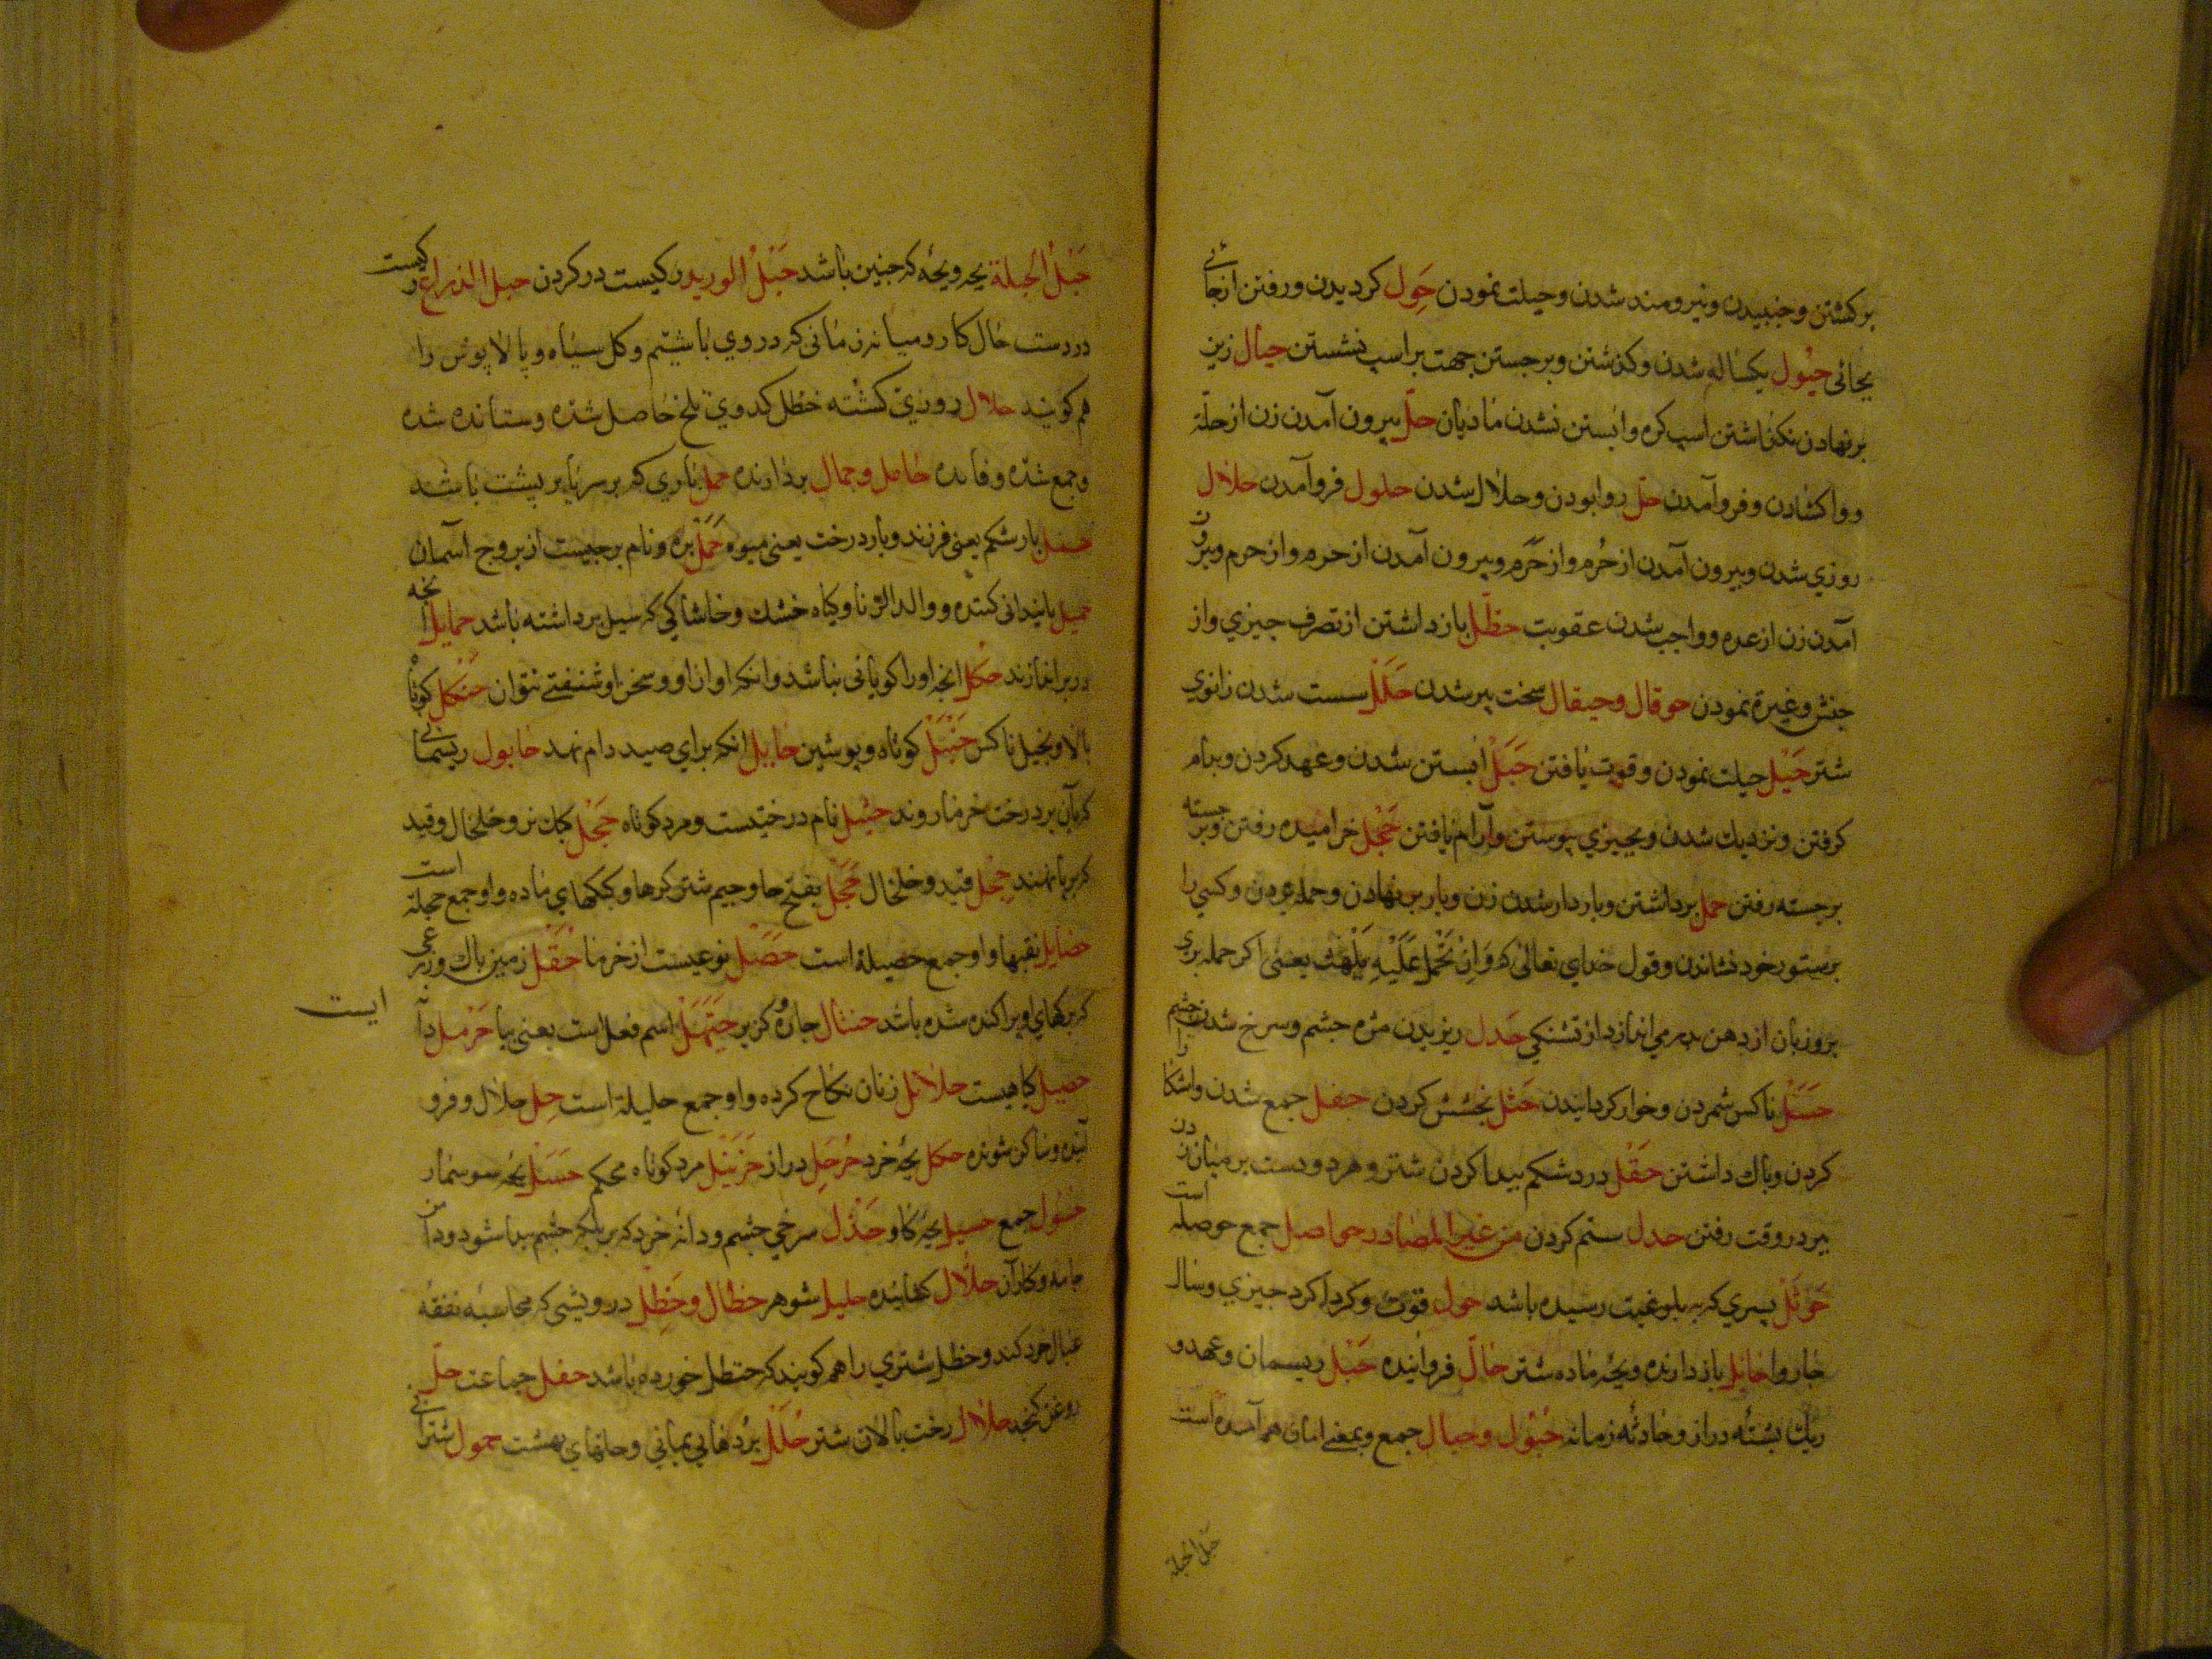 برکشتن و جنبیدن و نیرومند شدن و حیلت نمودن حِوَل کردیدن و رفتن از جائی
بجائی حیُول یکساله شدن و کذشتن و برجستن جهت بر اسپ نشستن حیال زین
برنهادن نکذاشتن اسپ کره و ابستن نشدن مادیان حلّ بیرون آمدن زن از حلّة
و واکشادن و فروآمدن حلّ روا بودن و حلال شدن حلول فروآمدن حلال
روزی شدن و بیرون آمدن از حُرم و از حَرَم و بیرون آمدن از حرم و از حرم و بیرون
آمدن زن از عده و واجب شدن عقوبت حظل باز داشتن از تصرف چیزی و از
جنش و غیرة نمودن حوقال و حیقال سخت پیر شدن حَلَلْ سست شدن زانوی
شتر حَیْل حیلت نمودن و قوت یافتن حَبَلْ ابستن شدن و عهد کردن و بدام
کرفتن و نزدیك شدن و بچیزی پیوستن و آرام یافتن حَجْل خرامیده رفتن و برجسته
برجسته رفتن حمل برداشتن و باردار شدن زن و بار بر نهادن و حمله بردن و کسی را
برستور خود نشاندن و قول خدای تعالی که وَاِنْ تَحْمِلْ عَلَیْهِ یَلْهَثْ یعنی اکر حمله بری
برو زبان از دهن بدر می اندازد از تشنکی حَدل ریزیدن مژه چشم و سرخ شدن چشم
حَسْل ناکس شمردن و خوار کردانیدن حَثْل بخشش کردن حفل جمع شدن و اشکارا
کردن و باك داشتن حَقْل درد شکم پیدا کردن شتر و هر دو دست بر میان زدن
پیر در وقت رفتن حدل ستم کردن من غیر المصادر حواصل جمع حوصله است
حَوْثَلْ پسری که ببلوغیت رسیده باشد حول قوت و کرداکرد چیزی و سال
حایل باز دارنده و بچه ماده شتر حالّ فرو آینده حَبْل ریسمان و عهد و
ریك پشته دراز و حادثه زمانه حُبُول و حبال جمع و بمعنی امان هم آمده است
حبل الحبلة
حَبَلُ الْحَبَلة بچه و بچه که جنین باشد حَبْلُ الورید رکیست در کردن حبل الذراع رکیست
در دست حال کار و میانه زمانی که در وی باشیم و کل سیاه و پالاپوش را
هم کویند حلال روزی کشته حنظل کدوی تلخ حاصل شده و ستانده شده
و جمع شده و فانده حامل و حمال بردارنده حمل باری که بر سر یا بر پشت باشد
حمل بار شکم یعنی فرزند و بار درخت یعنی میوه حَمَلْ بره و نام برجیست از بروج آسمان
حمیل پایندانی کننده و ولد الزنا و کیاه خشك و خاشاکی که سیل برداشته باشد حمایل انچه
در بر اندازند حکل انچه اورا کویائی نباشد و انکه اواز او و سخن او شنفتن نتوان حنکل کوتاه
بالا و بخیل ناکس حَنْبَلْ کوتاه و پوستین حابل انکه برای صید دام نهد حابول ریسمانی
که بآن بر درخت خرما روند حثیل نام درختیست و مرد کوتاه حَجْل کبك نر و خلخال و قید
که بر پا نهند حِجل قید و خلخال حَجَل بفتح حا و جیم شتر کرها و کبکهای ماده و او جمع حجلة است
حصایل نقبها و او جمع حصیله است حَصَل نوعیست از خرما حَقْل زمین پاك و زرعی
که برکهای او پراکنده شده باشد حنتال چاره و کزیر حَیَّهَلْ اسم فعل است یعنی بیا حَرْمل دآ
ایست
حصیل کیاهیست حلائل زنان نکاح کرده و او جمع حلیلة است حِل حلال و فرو
آینده و ساکن شونده حکل بچه خرد حُرْجل دراز حَزَنْبَل مرد کوتاه محکم حِسْل بچه سوسمار
حُسُول جمع حسیل بچه کاو حَذْل سرخی چشم و دانه خرد که بر پلك چشم پیدا شود و دامن
جامه و کنار آن حلّال کشاینده حلیل شوهر حظال و حَظِل درویشی که محاسبه نفقه
عیال خود کند و حظل شتری را هم کویند که حنظل خورده باشد حفل جماعت حلّ
روغن کنجد حلال رخت پالان شتر حُلَل بردهای یمانی و حلهای بهشت حمول شترانی